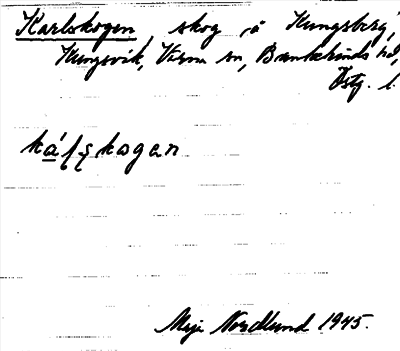 Karlskogen, skog å Kungsberg,
Kungsvik, Värna sn, Bankekinds hd,
Östg. l.
kálskogan
Maja Nordlund 1945.